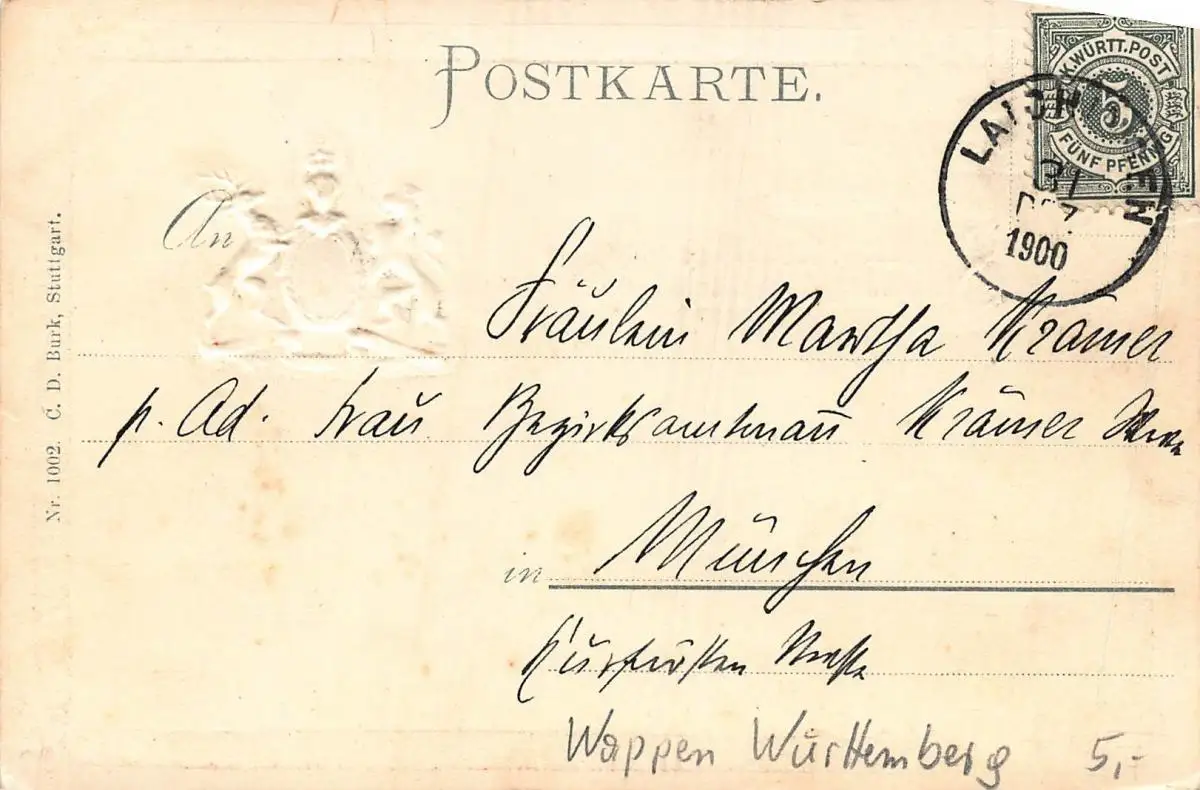 POSTKARTE.
K. WÜRTT. POST
5
FÜNF PFENNIG
LAICHINGEN
31
DEZ.
1900
An
Fräulein Martha Krämer
p. Ad. Frau Bezirksamtmann Krämer
in München
Kurfürsten Straße
Wappen Württemberg 5,-
Nr. 1002. C. D. Burk, Stuttgart.